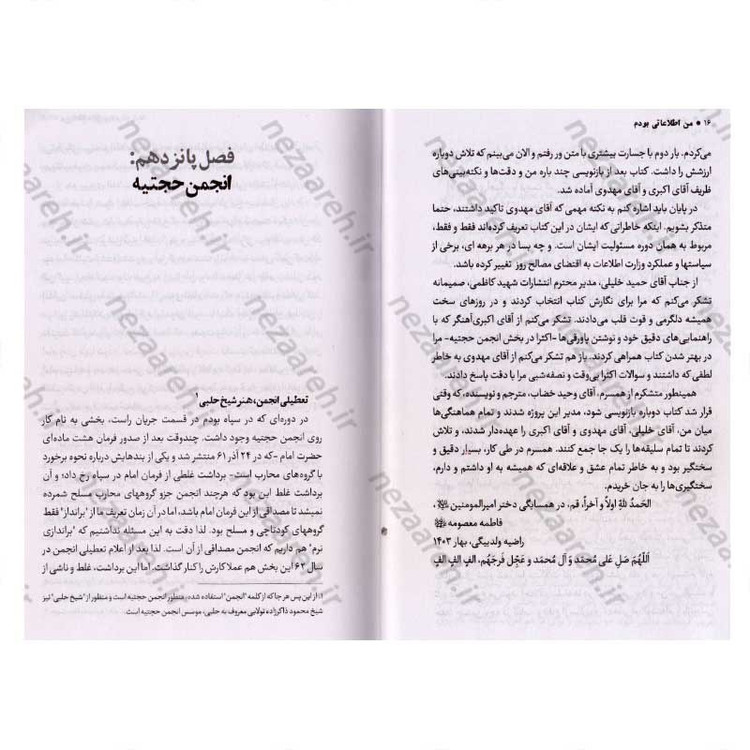 ۱۶ • من اطلاعاتی بودم
می‌کردم. بار دوم با جسارت بیشتری با متن ور رفتم و الان می‌بینم که تلاش دوباره
ارزشش را داشت. کتاب بعد از بازنویسی چند باره من و دقت‌ها و نکته‌بینی‌های
ظریف آقای اکبری و آقای مهدوی آماده شد.
در پایان باید اشاره کنم به نکته مهمی که آقای مهدوی تاکید داشتند، حتما
متذکر بشویم. اینکه خاطراتی که ایشان در این کتاب تعریف کرده‌اند فقط و فقط،
مربوط به همان دوره مسئولیت ایشان است. و چه بسا در هر برهه ای، برخی از
سیاستها و عملکرد وزارت اطلاعات به اقتضای مصالح روز تغییر کرده باشد.
از جناب آقای حمید خلیلی، مدیر محترم انتشارات شهید کاظمی، صمیمانه
تشکر می‌کنم که مرا برای نگارش کتاب انتخاب کردند و در روزهای سخت
همیشه دلگرمی و قوت قلب می‌دادند. تشکر می‌کنم از آقای اکبری‌آهنگر که با
راهنمایی‌های دقیق خود و نوشتن پاورقی‌ها -اکثرا در بخش انجمن حجتیه- مرا
در بهتر شدن کتاب همراهی کردند. باز هم تشکر می‌کنم از آقای مهدوی به خاطر
لطفی که داشتند و سوالات اکثرا بی‌وقت و نصفه‌شبی مرا با دقت پاسخ دادند.
همینطور متشکرم از همسرم، آقای وحید خضاب، مترجم و نویسنده، که وقتی
قرار شد کتاب دوباره بازنویسی شود، مدیر این پروژه شدند و تمام هماهنگی‌ها
میان من، آقای خلیلی، آقای مهدوی و آقای اکبری را عهده‌دار شدند، و تلاش
کردند تا تمام سلیقه‌ها را یک جا جمع کنند. همسرم در طی کار، بسیار دقیق و
سختگیر بود و به خاطر تمام عشق و علاقه‌ای که همیشه به او داشتم و دارم،
سختگیری‌ها را به جان خریدم.
الحَمدُ للهِ اولاً و آخراً، قم، در همسایگی دختر امیرالمومنین
فاطمه معصومه
راضیه ولدبیگی، بهار ۱۴۰۳
اَللّهُمَ صَلِ عَلی مُحمَد وَ آل مُحمَد و عَجِل فَرجَهُم، الفِ الفِ الفِ
فصل پانزدهم:
انجمن حجتیه
تعطیلی انجمن، هنر شیخ حلبی۱
در دوره‌ای که در سپاه بودم در قسمت جریان راست، بخشی به نام کار
روی انجمن حجتیه وجود داشت. چندوقت بعد از صدور فرمان هشت ماده‌ای
حضرت امام -که در ۲۴ آذر ۶۱ منتشر شد و یکی از بندهایش درباره نحوه برخورد
با گروه‌های محارب است- برداشت غلطی از فرمان امام در سپاه رخ داد؛ و آن
برداشت غلط این بود که هرچند انجمن جزو گروههای محارب مسلح شمرده
نمیشد تا مصداقی از این فرمان امام باشد، اما در آن زمان تعریف ما از "برانداز" فقط
گروههای کودتاچی و مسلح بود. لذا دقت به این مسئله نداشتیم که "براندازی
نرم" هم داریم که انجمن مصداقی از آن است. لذا بعد از اعلام تعطیلی انجمن در
سال ۶۲ این بخش هم عملا کارش را کنار گذاشت. اما این برداشت، غلط و ناشی از
۱: از این پس هر جا که از کلمه "انجمن" استفاده شده، منظور انجمن حجتیه است و منظور از "شیخ حلبی" نیز
شیخ محمود ذاکرزاده تولایی معروف به حلبی، موسس انجمن حجتیه است.
nezaareh.ir